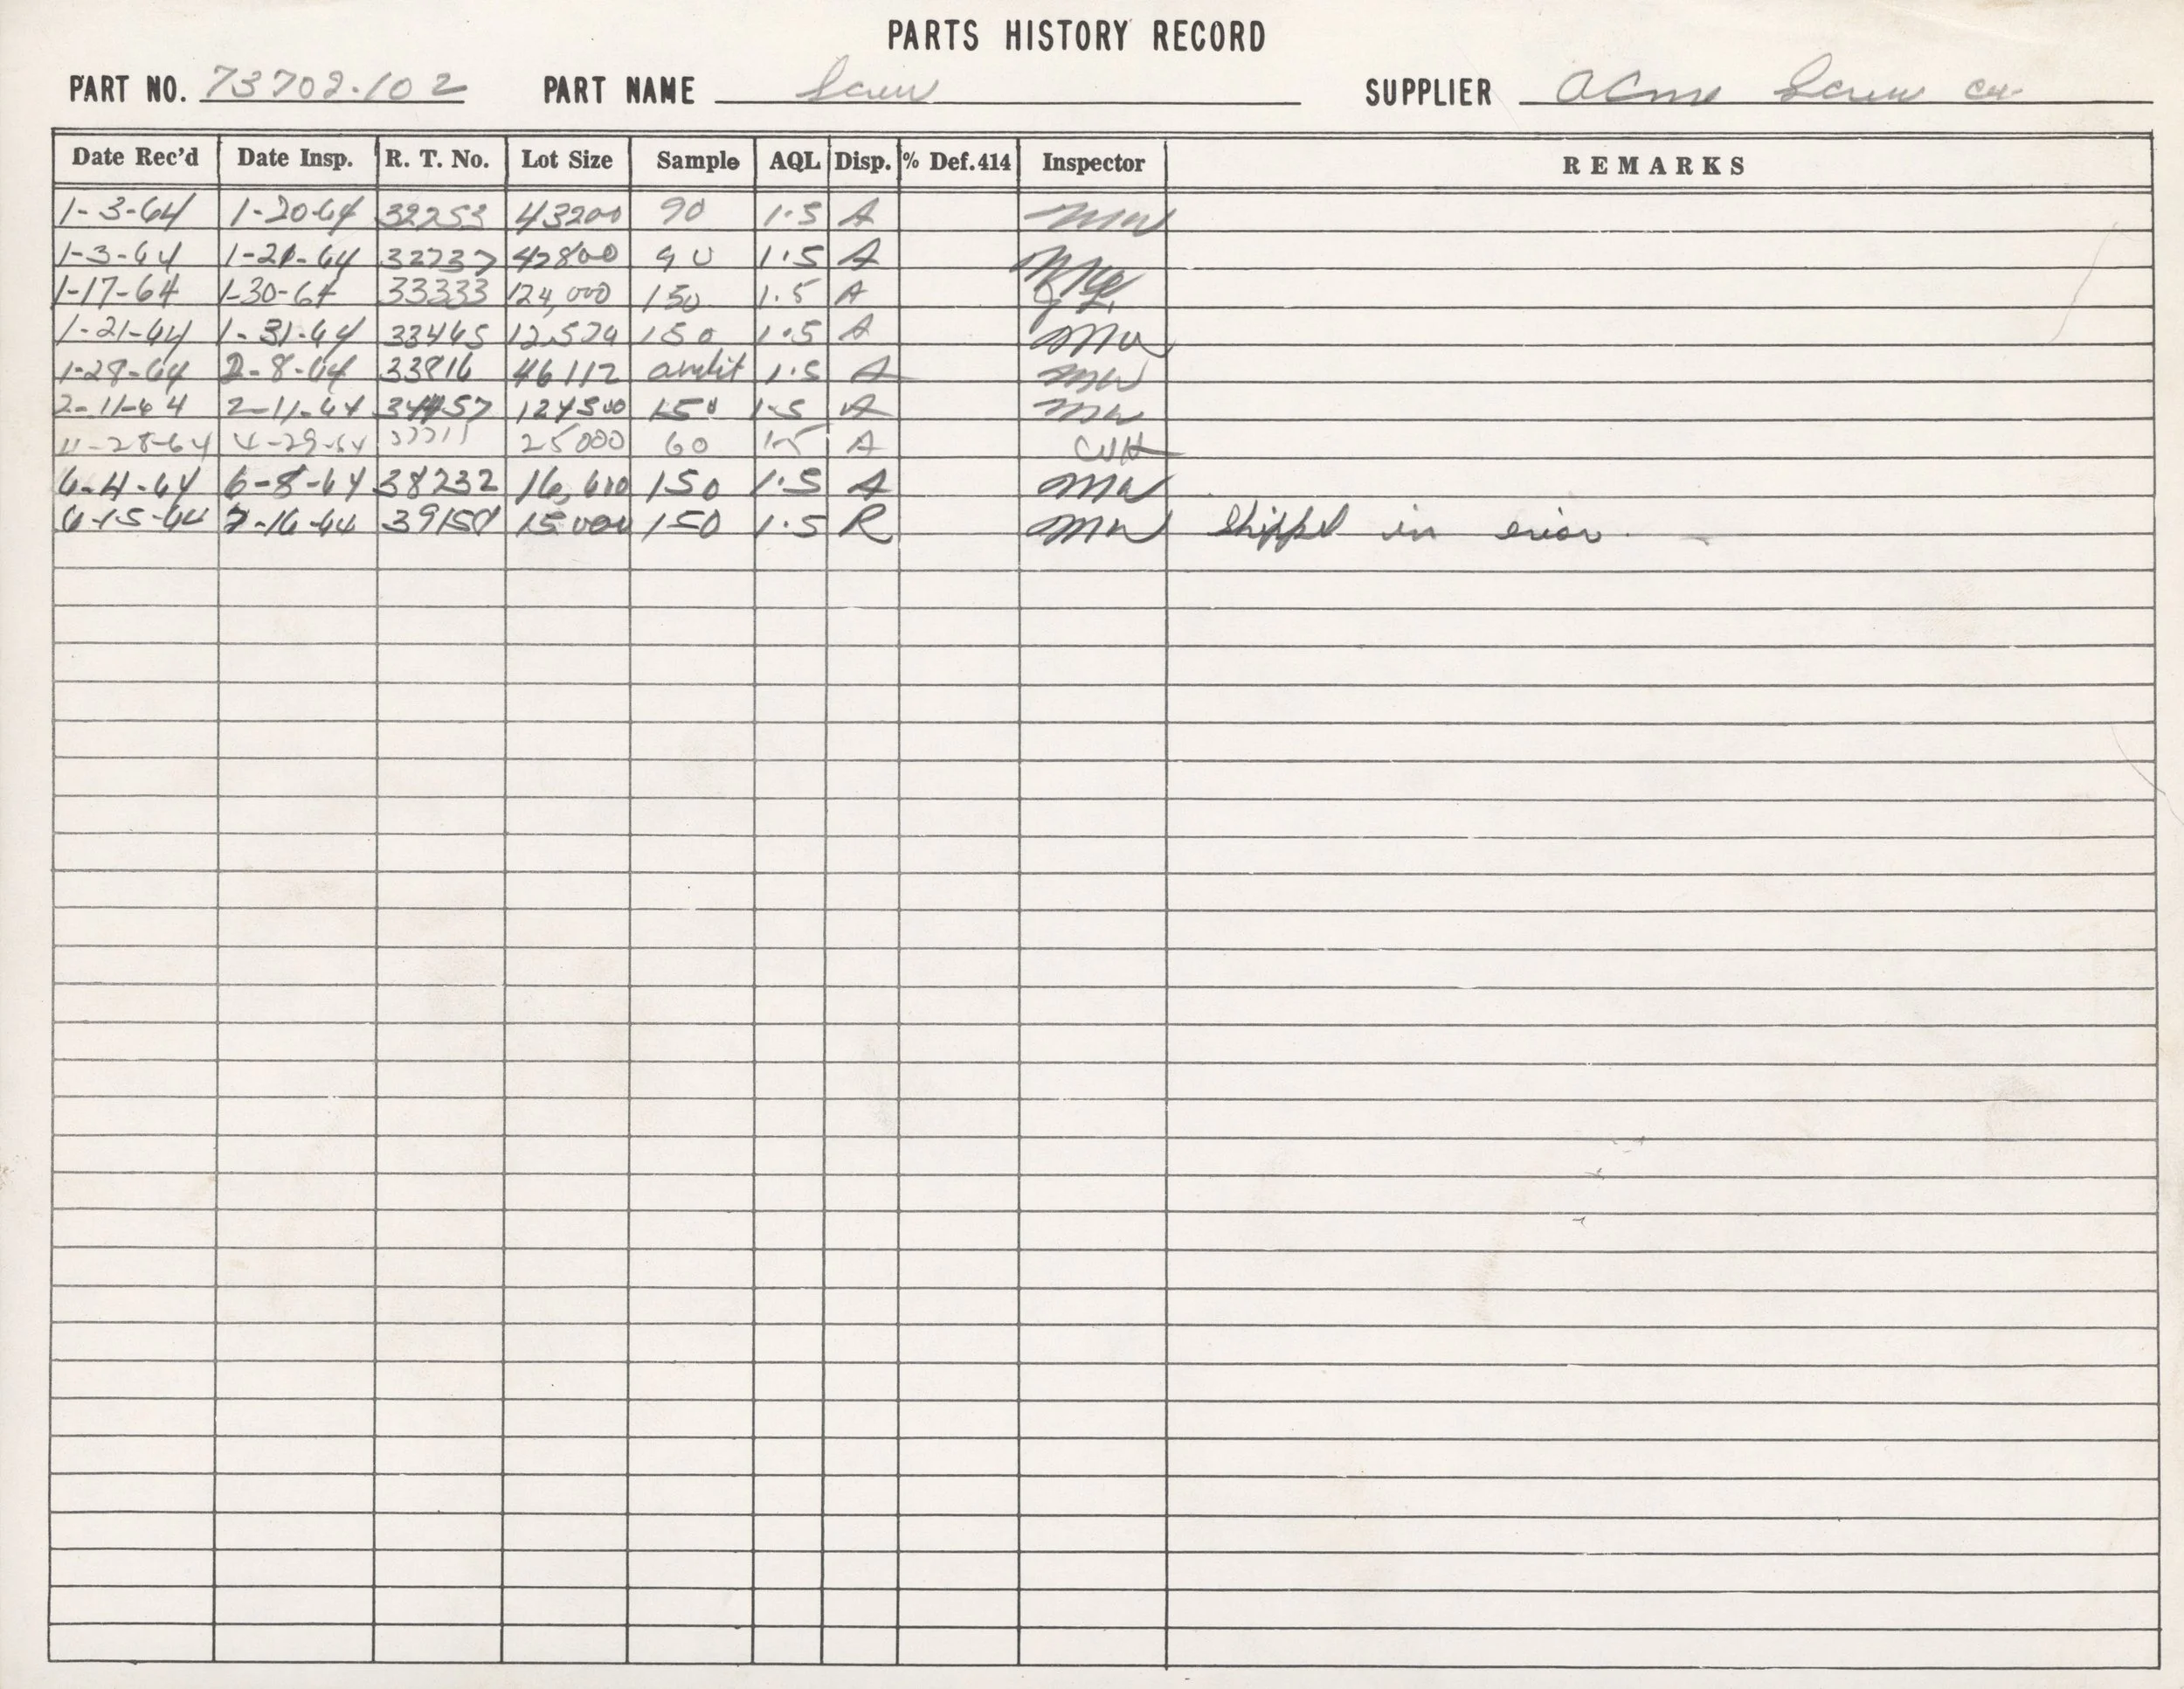 PARTS HISTORY RECORD
PART NO. 73702-102 PART NAME Screw SUPPLIER Acme Screw Co.
Date Rec'd Date Insp. R. T. No. Lot Size Sample AQL Disp. % Def.414 Inspector REMARKS
1-3-64 1-20-64 32253 43200 90 1.5 A MW
1-3-64 1-21-64 32737 42800 90 1.5 A
1-17-64 1-30-64 33333 124,000 150 1.5 A
1-21-64 1-31-64 33465 150 1.5 A MW
1-28-64 2-8-64 33816 46112 audit 1.5 A MW
2-11-64 2-11-64 34457 124500 150 1.5 A MW
4-29-64 37711 25000 60 1.5 A CWH
6-4-64 6-8-64 38232 16,600 150 1.5 A MW
6-15-64 7-16-64 15000 150 1.5 R MW Shipped in error.